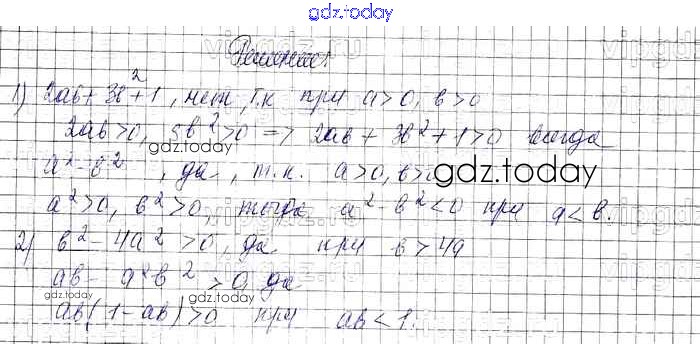 gdz.today
Решение:
1) 2ab + 3b² + 1, нет, т.к при a > 0, b > 0
2ab > 0, 5b² > 0 => 2ab + 3b² + 1 > 0 всегда
gdz.today
a² - b², да, т.к. a > 0, b >
gdz.today
a² > 0, b² > 0, тогда a² - b² < 0 при a < b.
2) b² - 4a² > 0, да при b > 4a
ab - a²b² > 0, да
gdz.today
gdz.today
ab(1 - ab) > 0 при ab < 1.